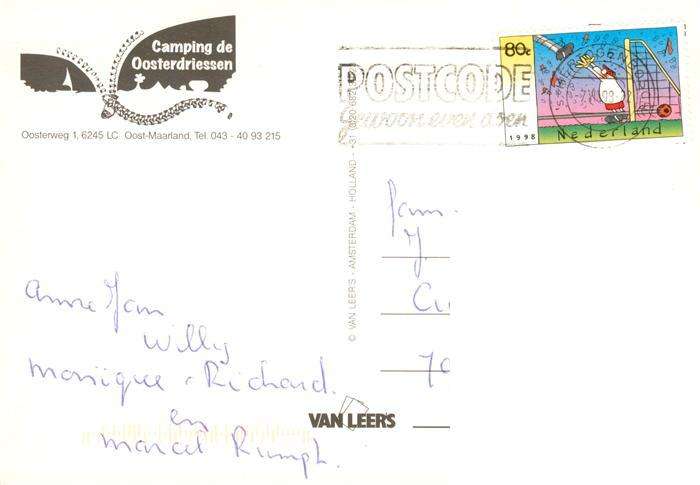 Camping de
Oosterdriessen
Oosterweg 1, 6245 LC Oost-Maarland, Tel. 043 - 40 93 215
POSTCODE
Gewoon even doen
80c
1998 Nederland
© VAN LEER'S - AMSTERDAM - HOLLAND
fam.
J.
Cu
70
Anne Jan
Willy
Monique - Richard.
en
Marcel Rumph.
VAN LEER'S